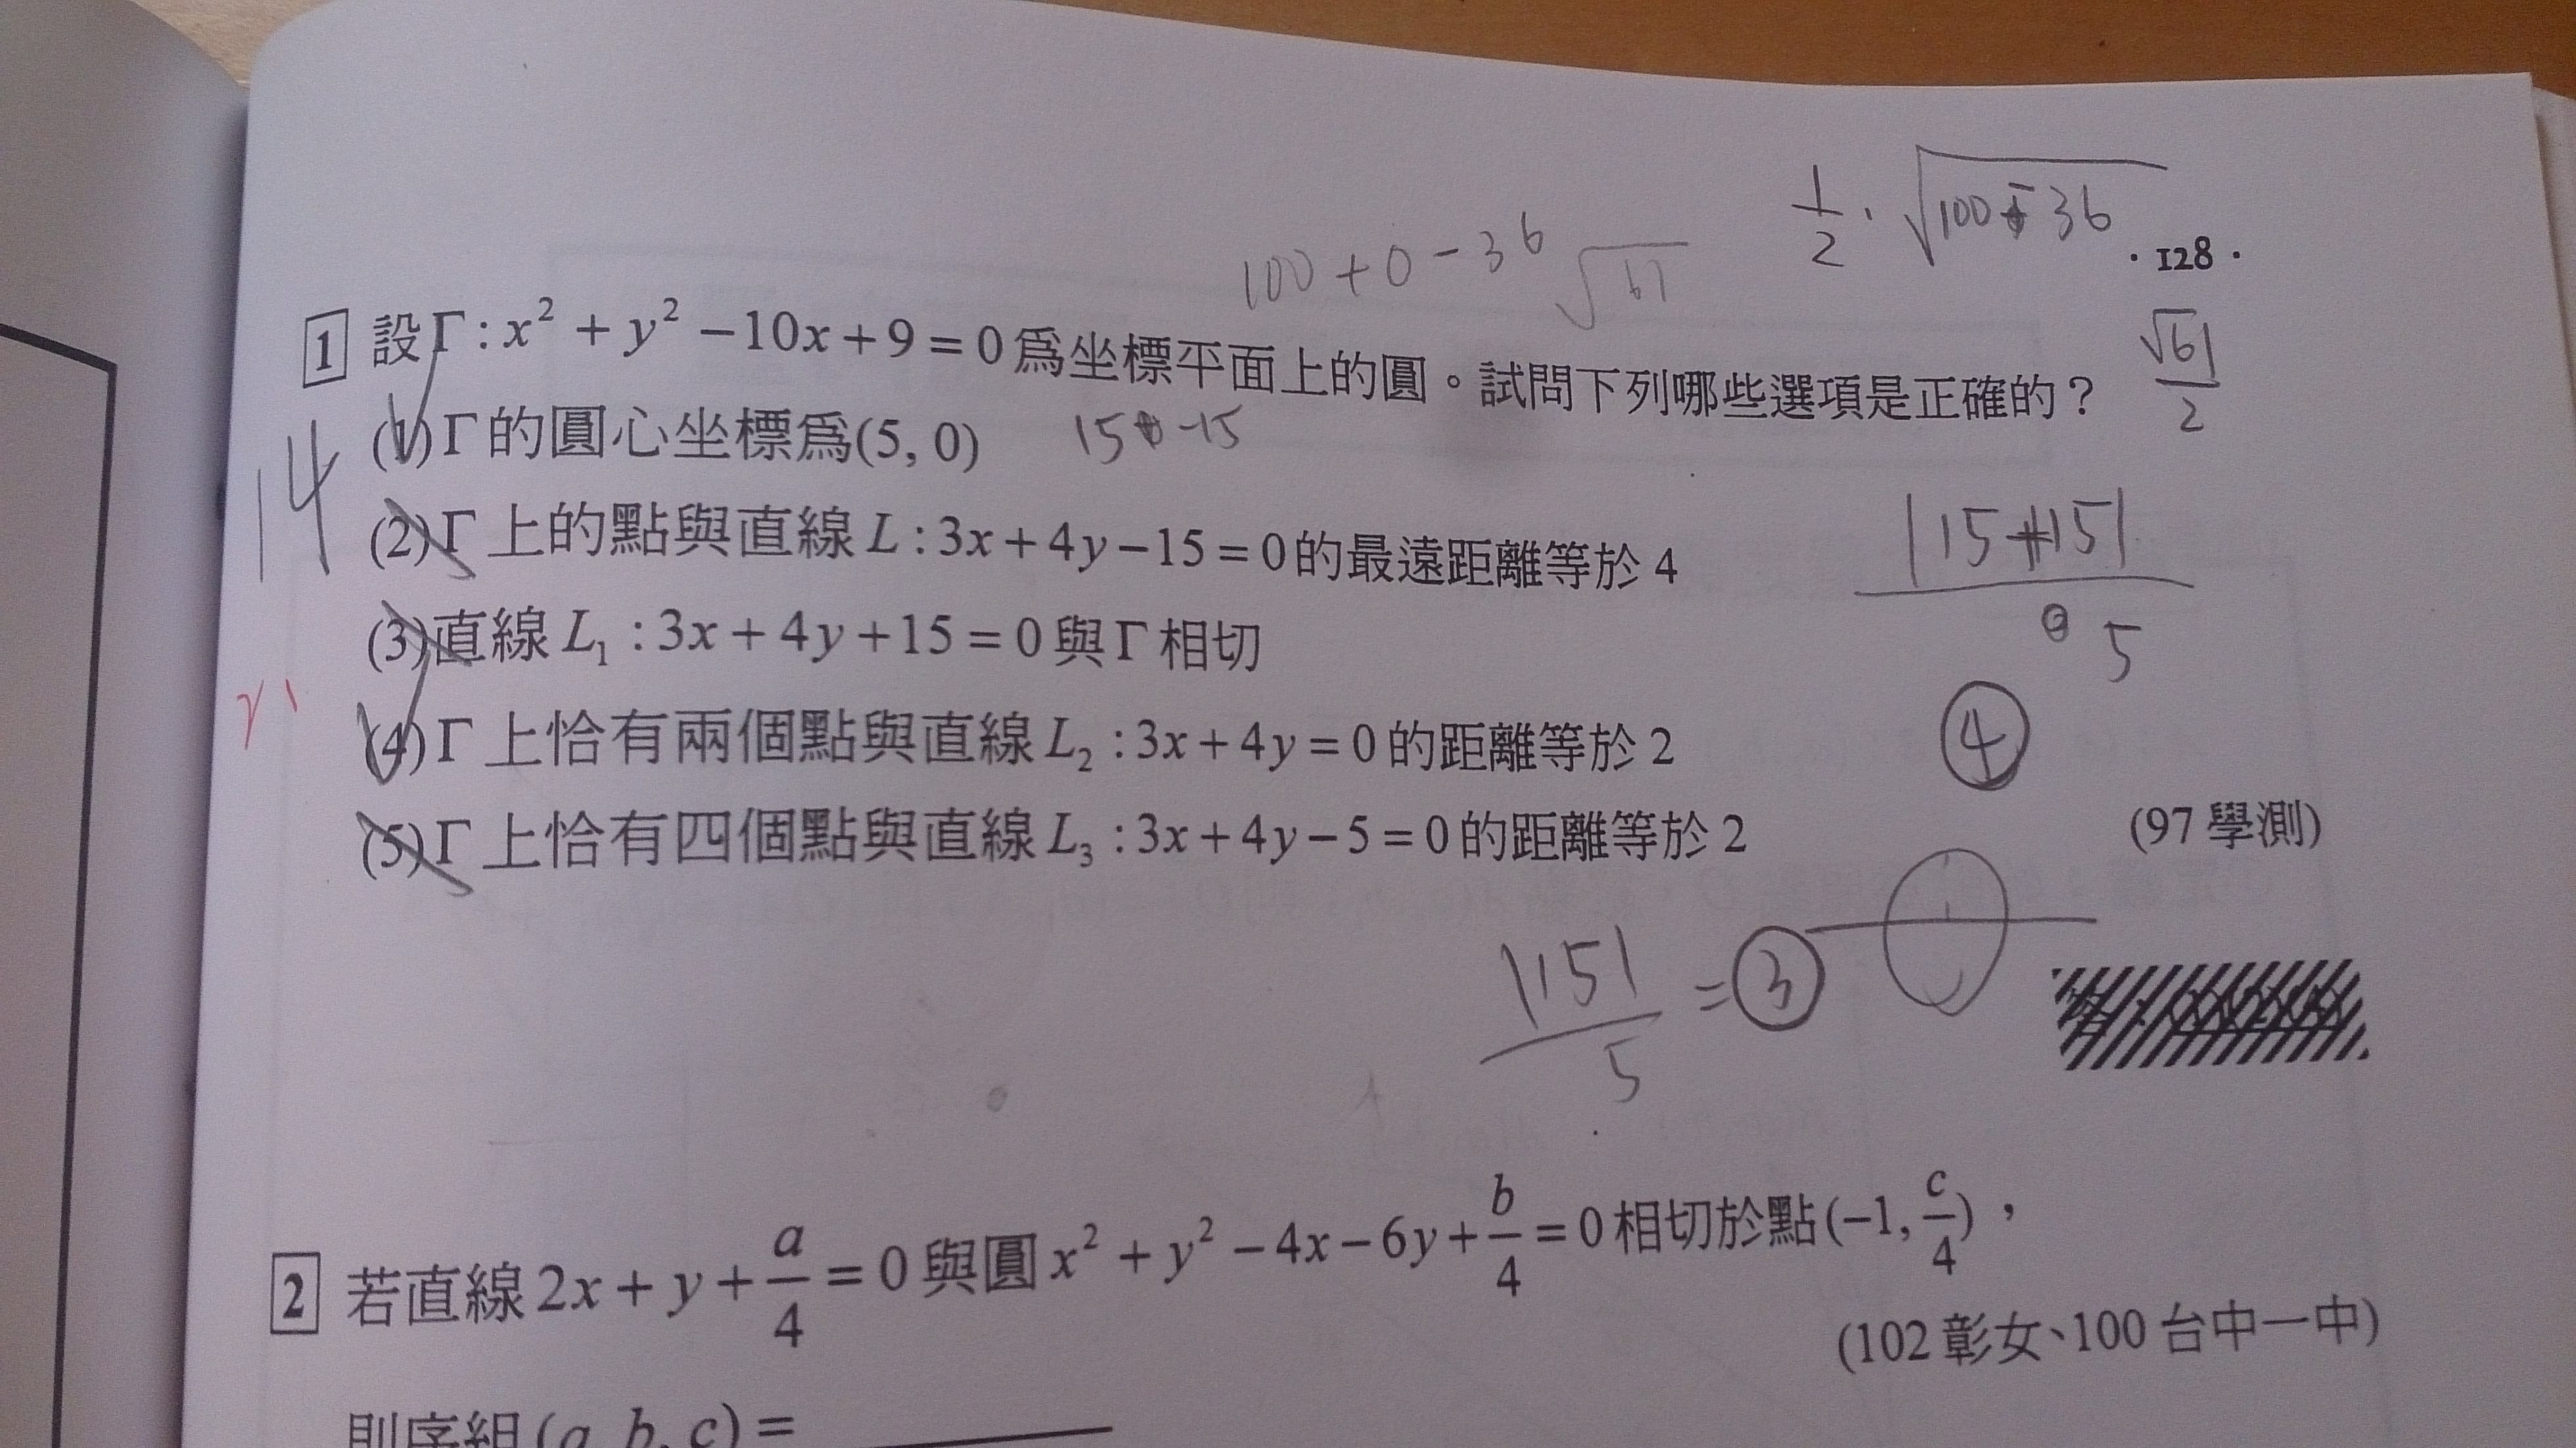 1/2 · √100-36
· 128 ·
100+0-36 √61
√61/2
1 設Γ : x² + y² − 10x + 9 = 0 為坐標平面上的圓。試問下列哪些選項是正確的？
(1)Γ 的圓心坐標為(5, 0)
15 -15
14
(2)Γ 上的點與直線 L : 3x + 4y − 15 = 0 的最遠距離等於 4
|15+15|/5
(3)直線 L₁ : 3x + 4y + 15 = 0 與 Γ 相切
(4)Γ 上恰有兩個點與直線 L₂ : 3x + 4y = 0 的距離等於 2
④
(5)Γ 上恰有四個點與直線 L₃ : 3x + 4y − 5 = 0 的距離等於 2
(97 學測)
|15|/5 = ③
2 若直線 2x + y + a/4 = 0 與圓 x² + y² − 4x − 6y + b/4 = 0 相切於點 (−1, c/4)，
(102 彰女、100 台中一中)
則序組 (a, b, c) =